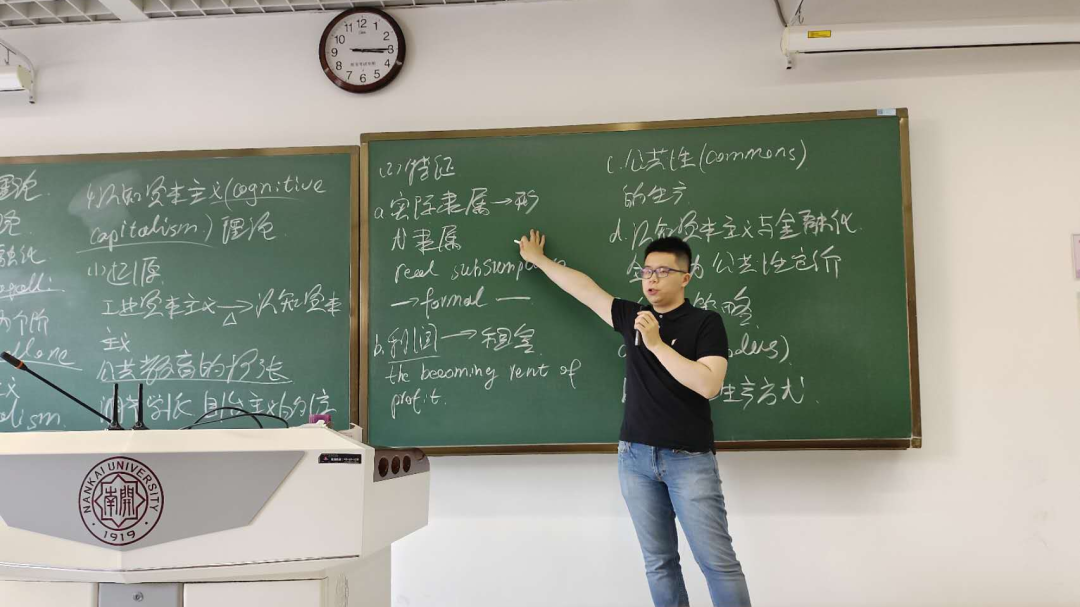 12
11
1
10
2
9
3
8
4
7
5
6
理论
融化
两个阶
alism
认知资本主义(cognitive
capitalism)理论
(1)起源
工业资本主义→认知资本
主义
公共教育的扩张
(2)特征
a.实际隶属→形
式隶属
real subsumption
→formal —
b.利润→租金
the becoming rent of
profit.
c.公共性(commons)
的生产
d.认知资本主义与金融化
为公共性定价
策略
ders)
生产方式.
NANKAI UNIVERSITY
南開
1919